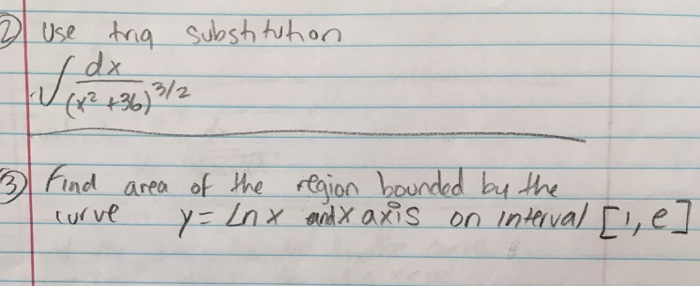 ② Use trig substitution
∫ dx / (x² + 36)^3/2
③ Find area of the region bounded by the
curve y = Ln x and x axis on interval [1, e]